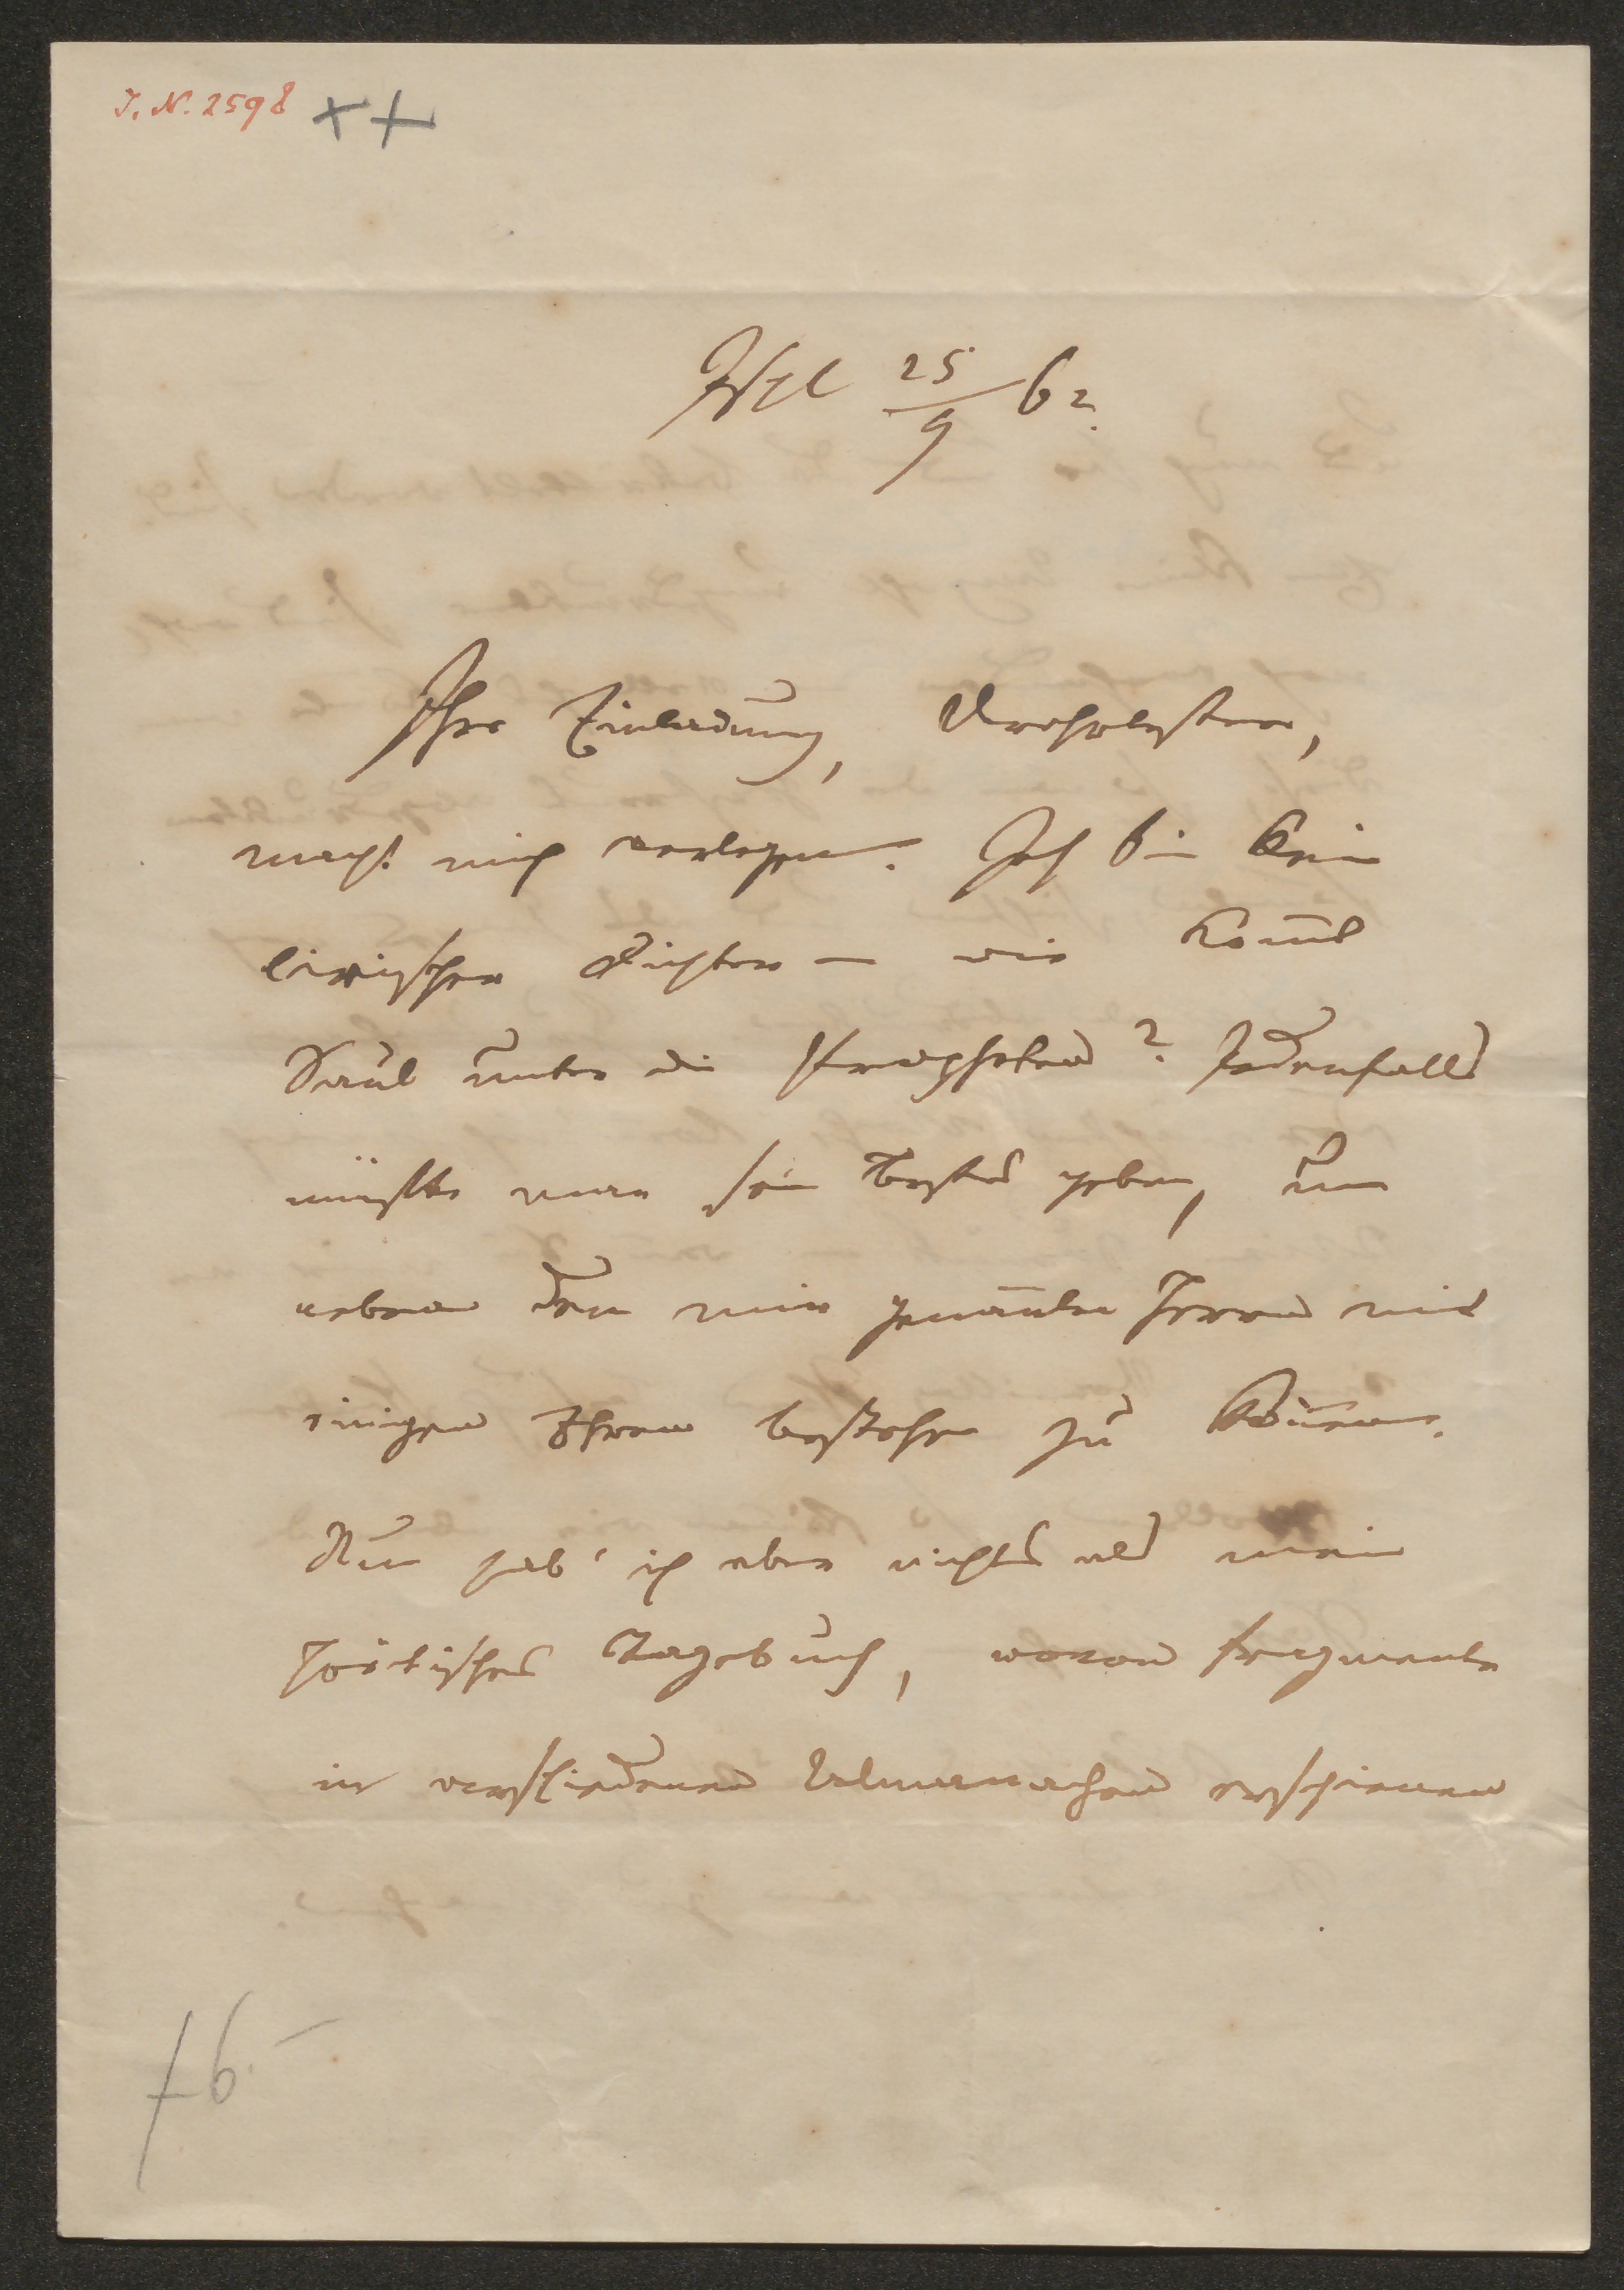 I. N. 2598
Ischl 25/9 62.
Ihre Einladung, Verehrtester,
macht mich verlegen. Ich bin kein
lirischer Dichter – wie kom̄t
Saul unter die Propheten? Jedenfalls
müßte man sein Bestes geben, um
neben den mir genan̄ten Herren mit
einigen Ehren bestehen zu kön̄en.
Nun hab' ich aber nichts als mein
poetisches Tagebuch, wovon Fragmente
in verschiedenen Almanachen erschienen